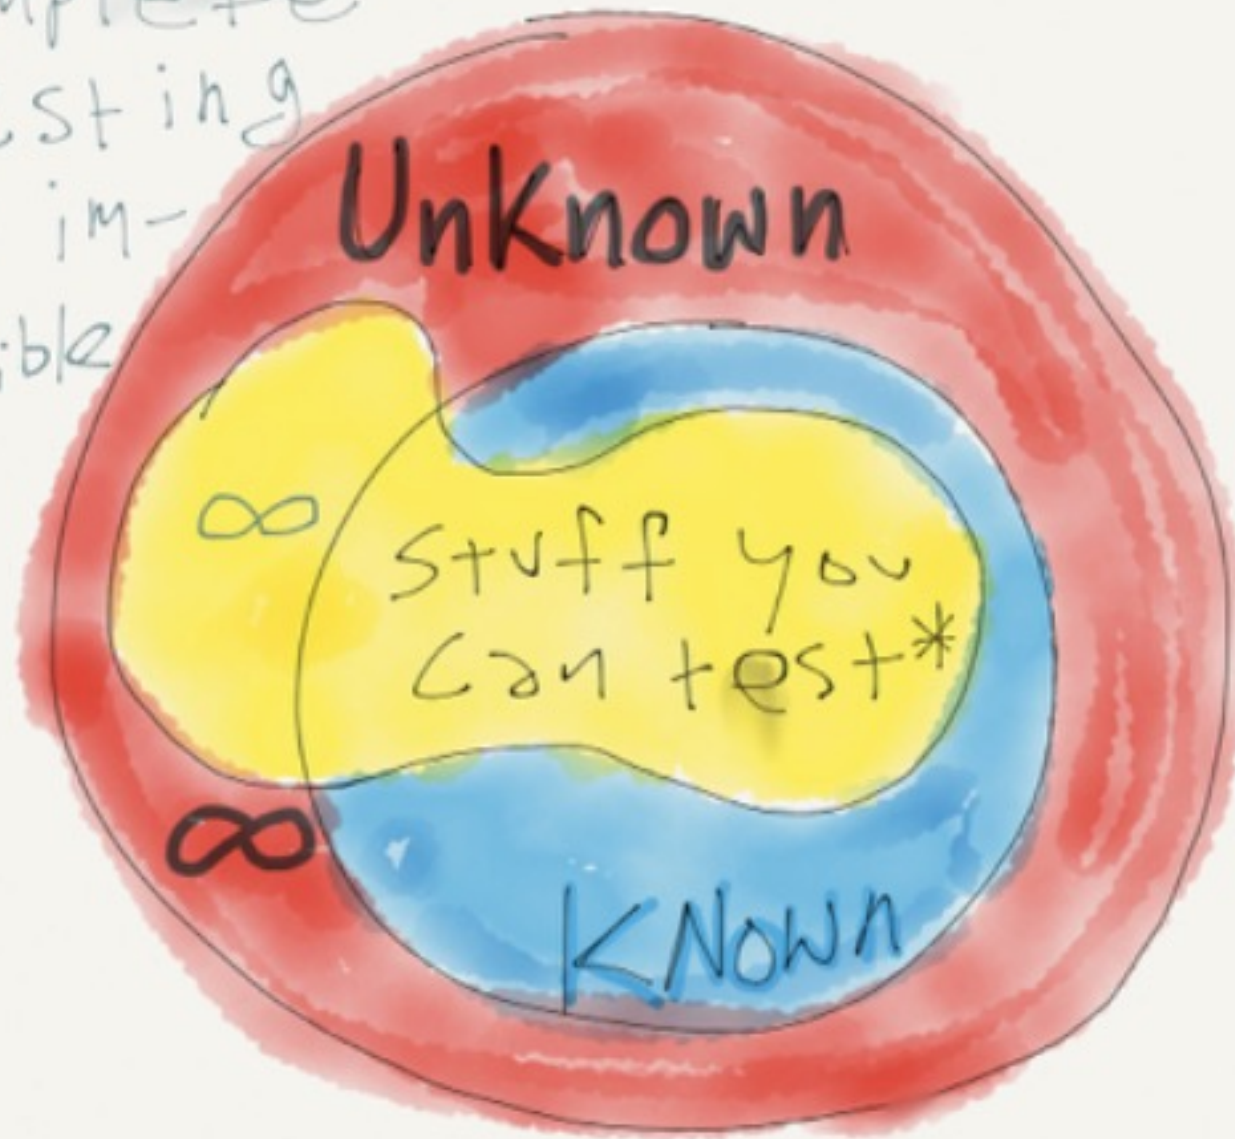 mplete
sting
im-
ible
Unknown
∞
Stuff you
can test*
∞
KNOWN